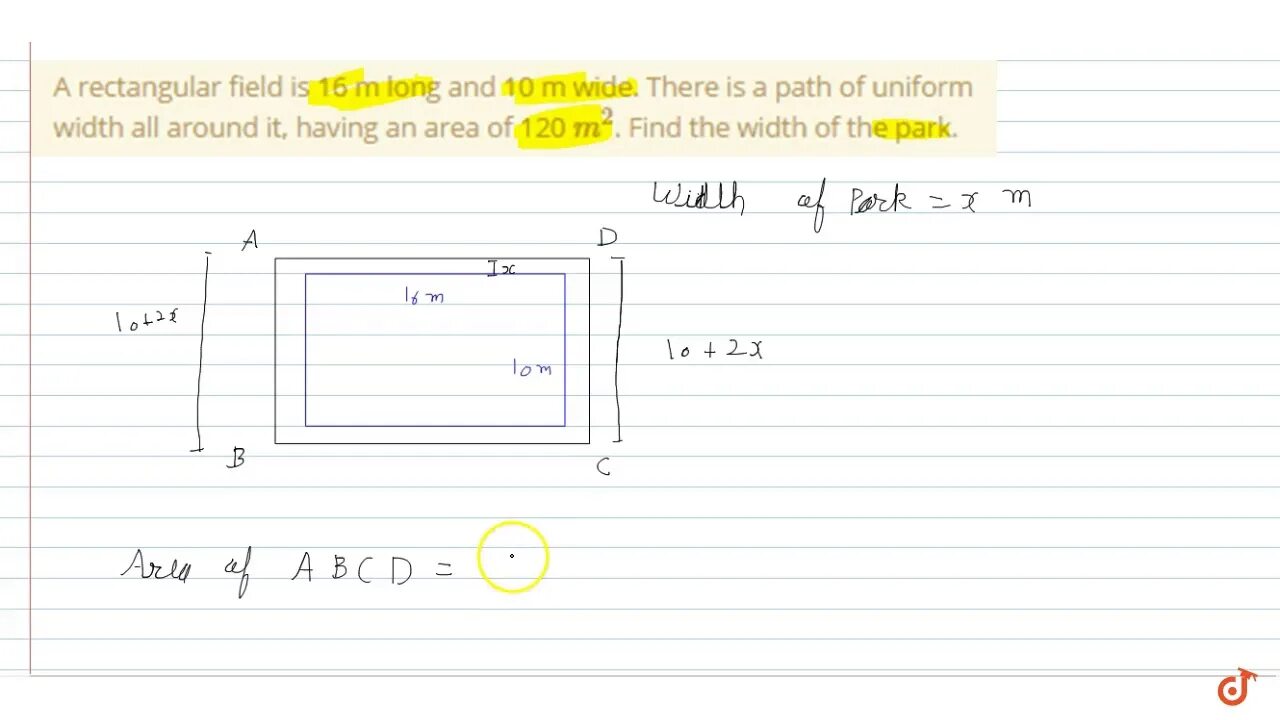 A rectangular field is 16 m long and 10 m wide. There is a path of uniform
width all around it, having an area of 120 m². Find the width of the park.
Width of Park = x m
A D
x
16 m
10+2x
10 + 2x
10 m
B C
Area of A B C D =